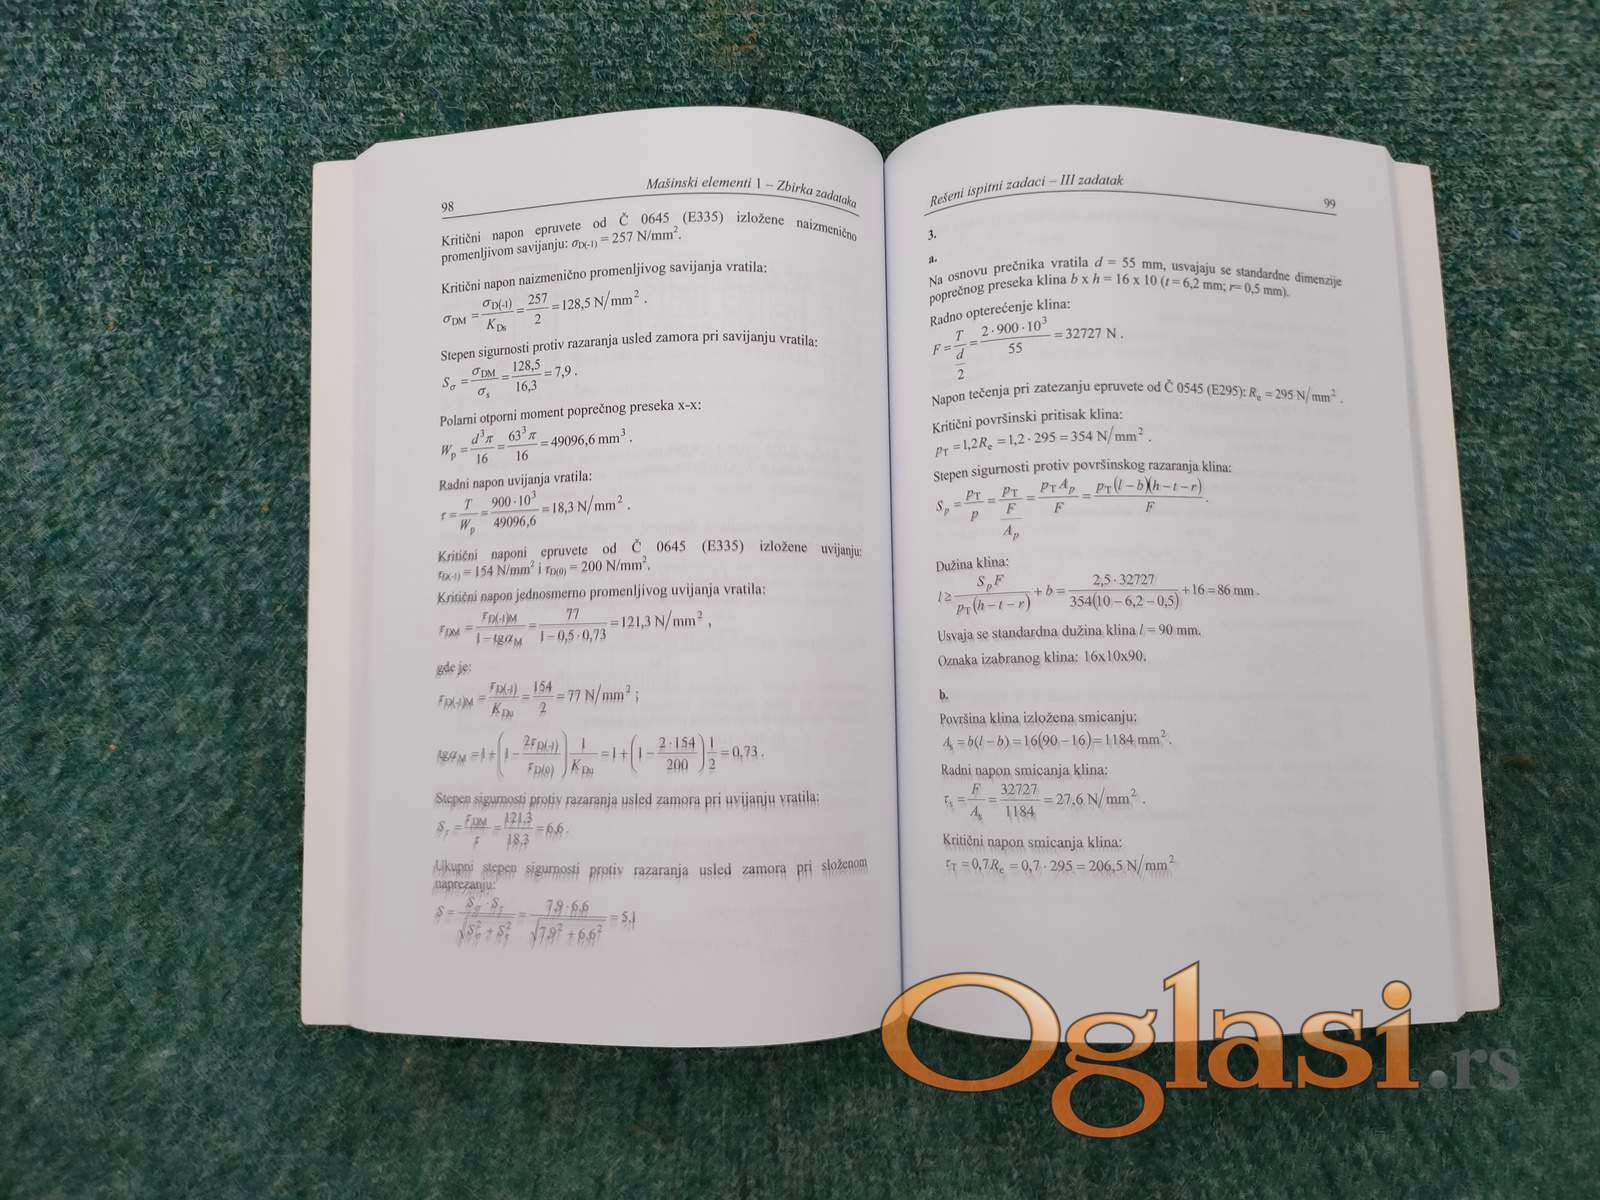 98
Mašinski elementi 1 – Zbirka zadataka
Kritični napon epruvete od Č 0645 (E335) izložene naizmenično
promenljivom savijanju: σD(-1) = 257 N/mm².
Kritični napon naizmenično promenljivog savijanja vratila:
σDM = σD(-1) / KDs = 257 / 2 = 128,5 N/mm² .
Stepen sigurnosti protiv razaranja usled zamora pri savijanju vratila:
Sσ = σDM / σs = 128,5 / 16,3 = 7,9 .
Polarni otporni moment poprečnog preseka x-x:
Wp = d³π / 16 = 63³π / 16 = 49096,6 mm³ .
Radni napon uvijanja vratila:
τ = T / Wp = 900·10³ / 49096,6 = 18,3 N/mm² .
Kritični naponi epruvete od Č 0645 (E335) izložene uvijanju:
τD(-1) = 154 N/mm² i τD(0) = 200 N/mm².
Kritični napon jednosmerno promenljivog uvijanja vratila:
τDM = τD(-1)M / 1 – tgαM = 77 / 1 – 0,5·0,73 = 121,3 N/mm² ,
gde je:
τD(-1)M = τD(-1) / KDu = 154 / 2 = 77 N/mm² ;
tgαM = 1 + (1 – 2τD(-1) / τD(0)) 1 / KDu = 1 + (1 – 2·154 / 200) 1 / 2 = 0,73 .
Stepen sigurnosti protiv razaranja usled zamora pri uvijanju vratila:
Sτ = τDM / τ = 121,3 / 18,3 = 6,6 .
Ukupni stepen sigurnosti protiv razaranja usled zamora pri složenom
naprezanju:
S = Sσ · Sτ / √(Sσ² + Sτ²) = 7,9·6,6 / √(7,9² + 6,6²) = 5,1
Rešeni ispitni zadaci – III zadatak
99
3.
a.
Na osnovu prečnika vratila d = 55 mm, usvajaju se standardne dimenzije
poprečnog preseka klina b x h = 16 x 10 (t = 6,2 mm; r= 0,5 mm).
Radno opterećenje klina:
F = T / (d / 2) = 2·900·10³ / 55 = 32727 N .
Napon tečenja pri zatezanju epruvete od Č 0545 (E295): Re = 295 N/mm² .
Kritični površinski pritisak klina:
pT = 1,2Re = 1,2·295 = 354 N/mm² .
Stepen sigurnosti protiv površinskog razaranja klina:
Sp = pT / p = pT / (F / Ap) = pT Ap / F = pT(l – b)(h – t – r) / F .
Dužina klina:
l ≥ Sp F / pT(h – t – r) + b = 2,5·32727 / 354(10 – 6,2 – 0,5) + 16 = 86 mm .
Usvaja se standardna dužina klina l = 90 mm.
Oznaka izabranog klina: 16x10x90.
b.
Površina klina izložena smicanju:
As = b(l – b) = 16(90 – 16) = 1184 mm² .
Radni napon smicanja klina:
τs = F / As = 32727 / 1184 = 27,6 N/mm² .
Kritični napon smicanja klina:
τT = 0,7Re = 0,7·295 = 206,5 N/mm²
Oglasi.rs